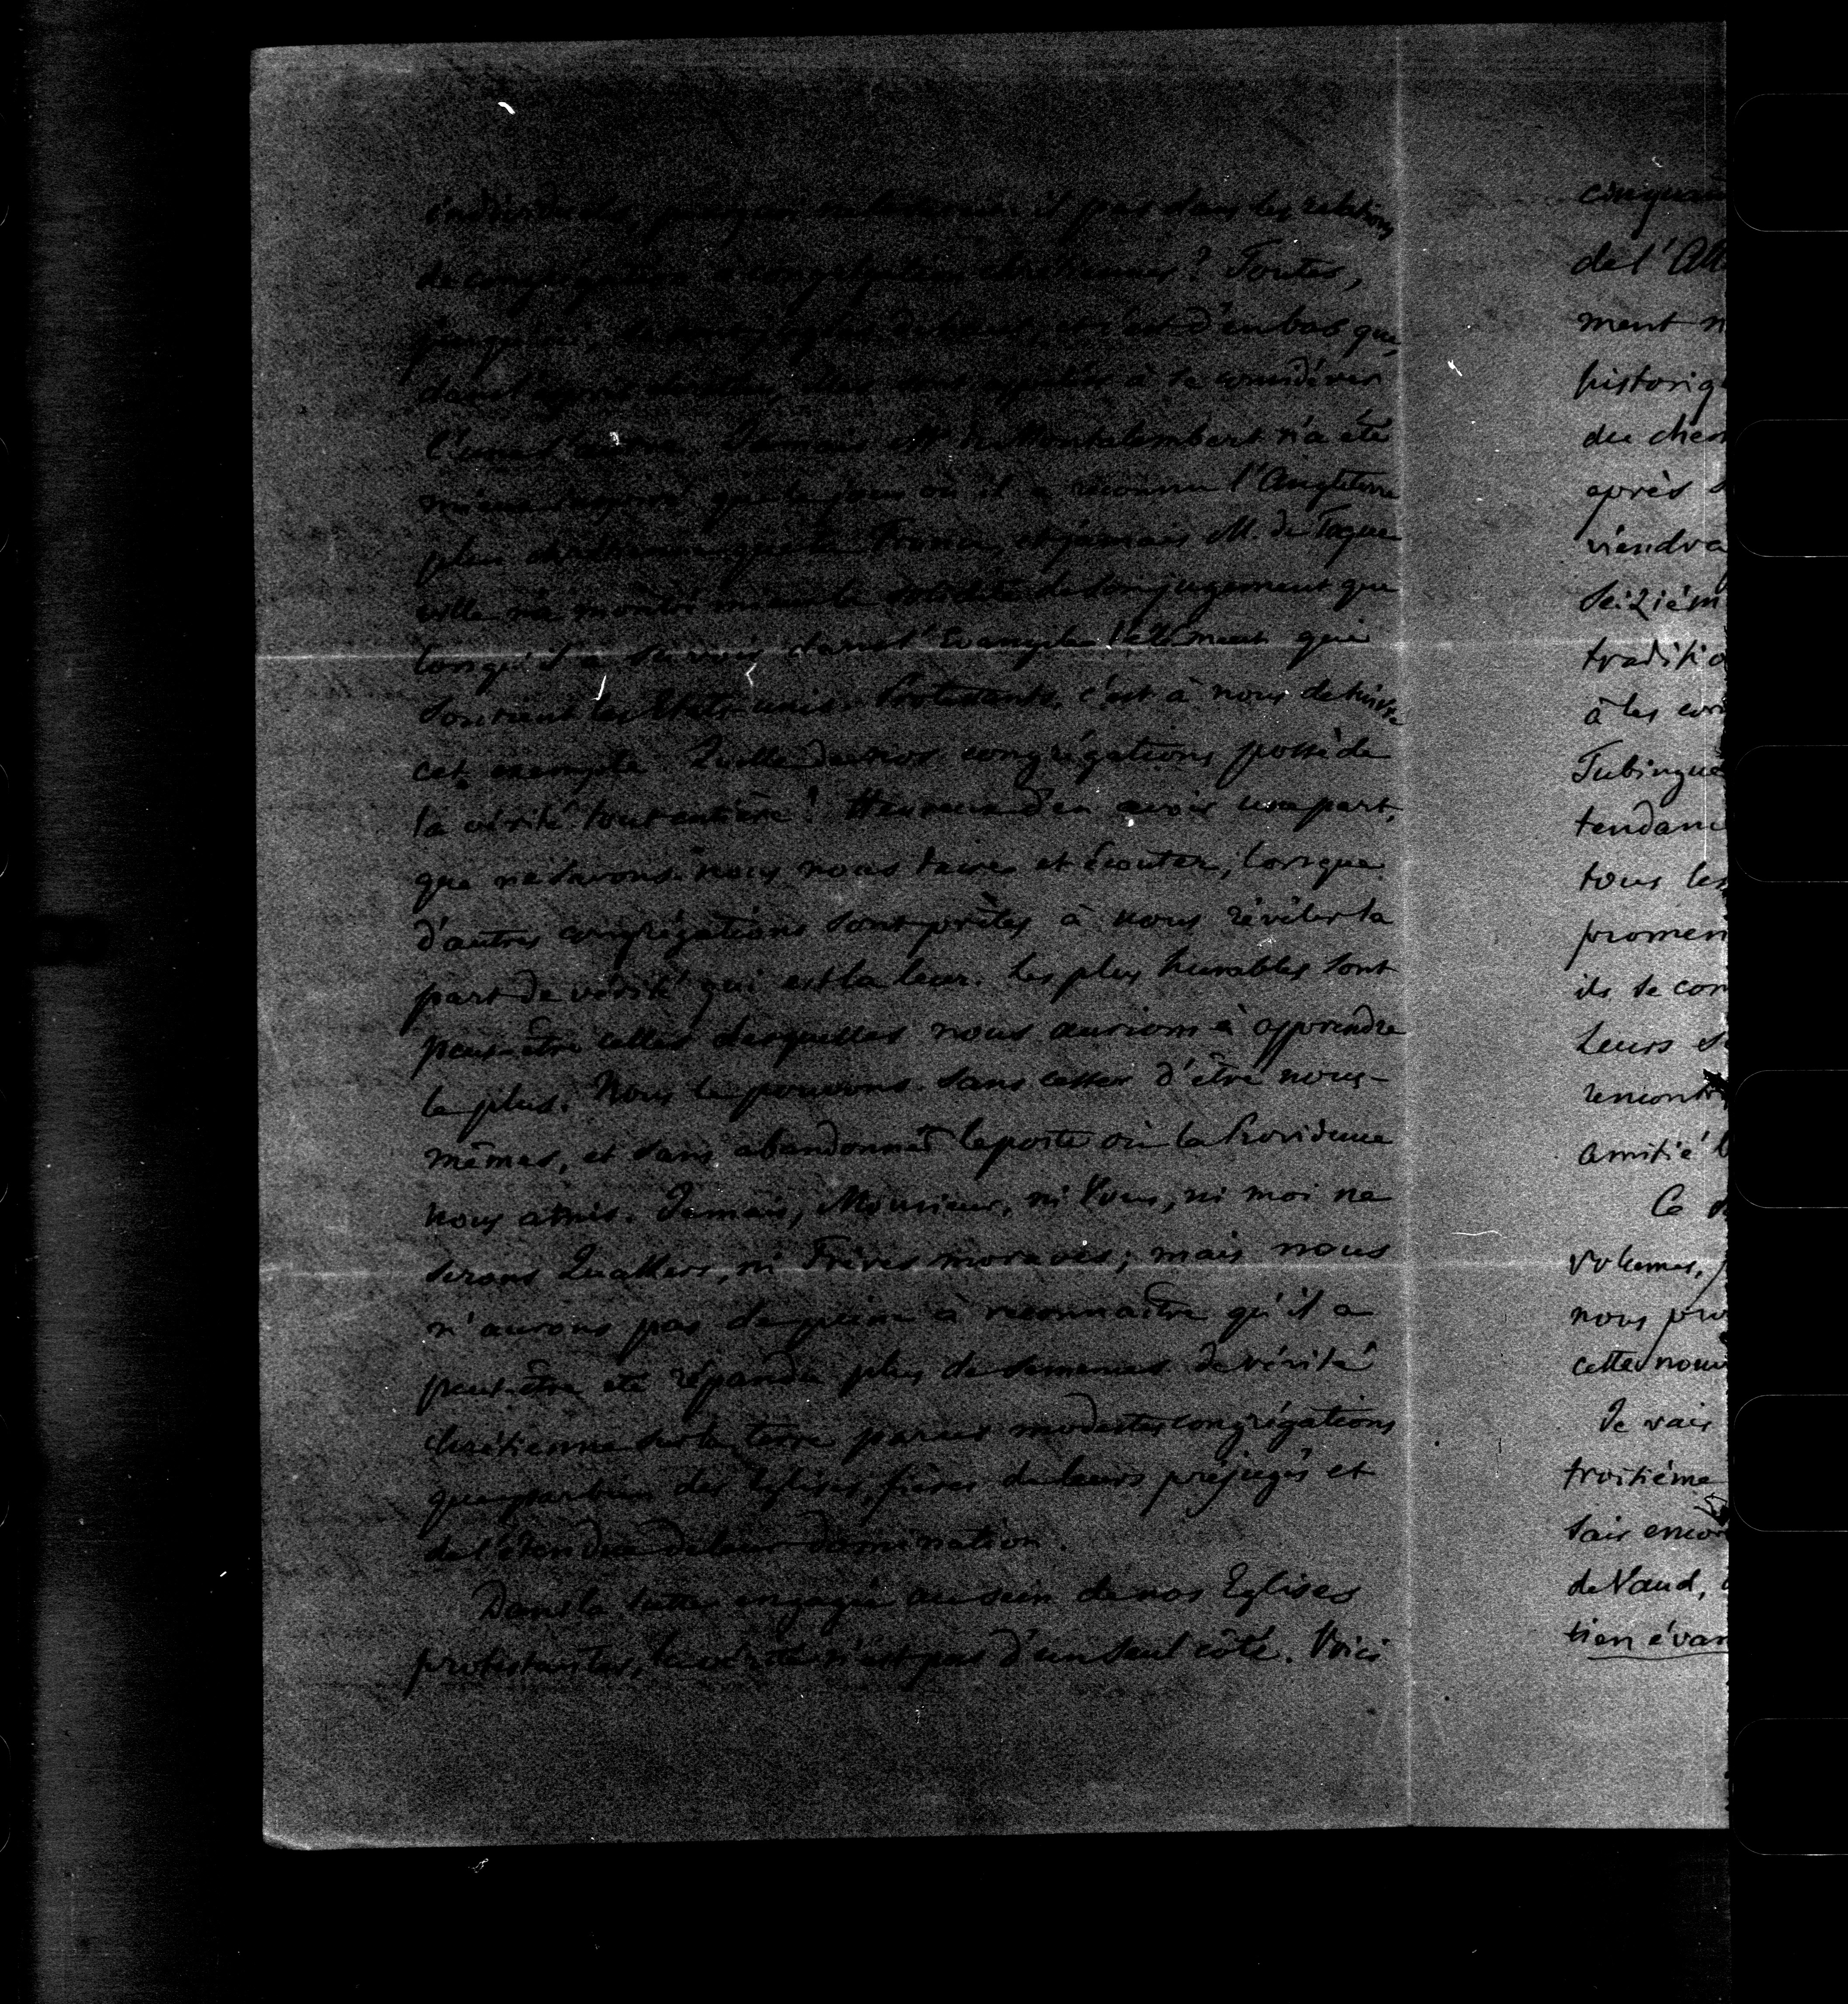 individuelles, pourquoi ne le serait-il pas dans les relations
de congrégation à congrégation chrétiennes? Toutes,
d'en bas que,
elles sont appelées à se considérer
l'une l'autre. Jamais Mr de Montalembert n'a été
mieux inspiré que le jour où il a reconnu l'Angleterre
plus chrétienne que la France, et jamais M. de Tocque
ville n'a montré mieux la solidité de son jugement que
lorsqu'il a dans l'Evangile l'élément qui
soutient les Etats-unis. Protestants, c'est à nous de suivre
cet exemple. Quelle de nos congrégations possède
la vérité tout entière? Heureux d'en avoir une part,
que ne savons-nous nous taire et écouter, lorsque
d'autres congrégations sont prêtes à nous révéler la
part de vérité qui est la leur. Les plus humbles sont
peut-être celles desquelles nous aurions à apprendre
le plus. Nous le pouvons sans cesser d'être nous-
mêmes, et sans abandonner le poste où la Providence
nous a mis. Jamais, Monsieur, ni Vous, ni moi ne
serons Quakers, ni Frères moraves; mais nous
n'aurons pas de peine à reconnaître qu'il a
peut-être été répandu plus de semences de vérité
chrétienne sur la terre par ces modestes congrégations
que par bien des Eglises, fières de leurs préjugés et
de l'étendue de leur domination.
Dans la lutte engagée au sein de nos Eglises
protestantes, la vérité n'est pas d'un seul côté. Voici
de l'All
ment n
historiq
du chem
après
viendra
seizièm
traditio
à les
Tubingue
tendanc
tous les
promen
ils se con
leurs
rencontr
amitié
Ce
volumes,
nous pro
cette nouv
Je vais
troisième
sais encor
de Vaud,
tien évan